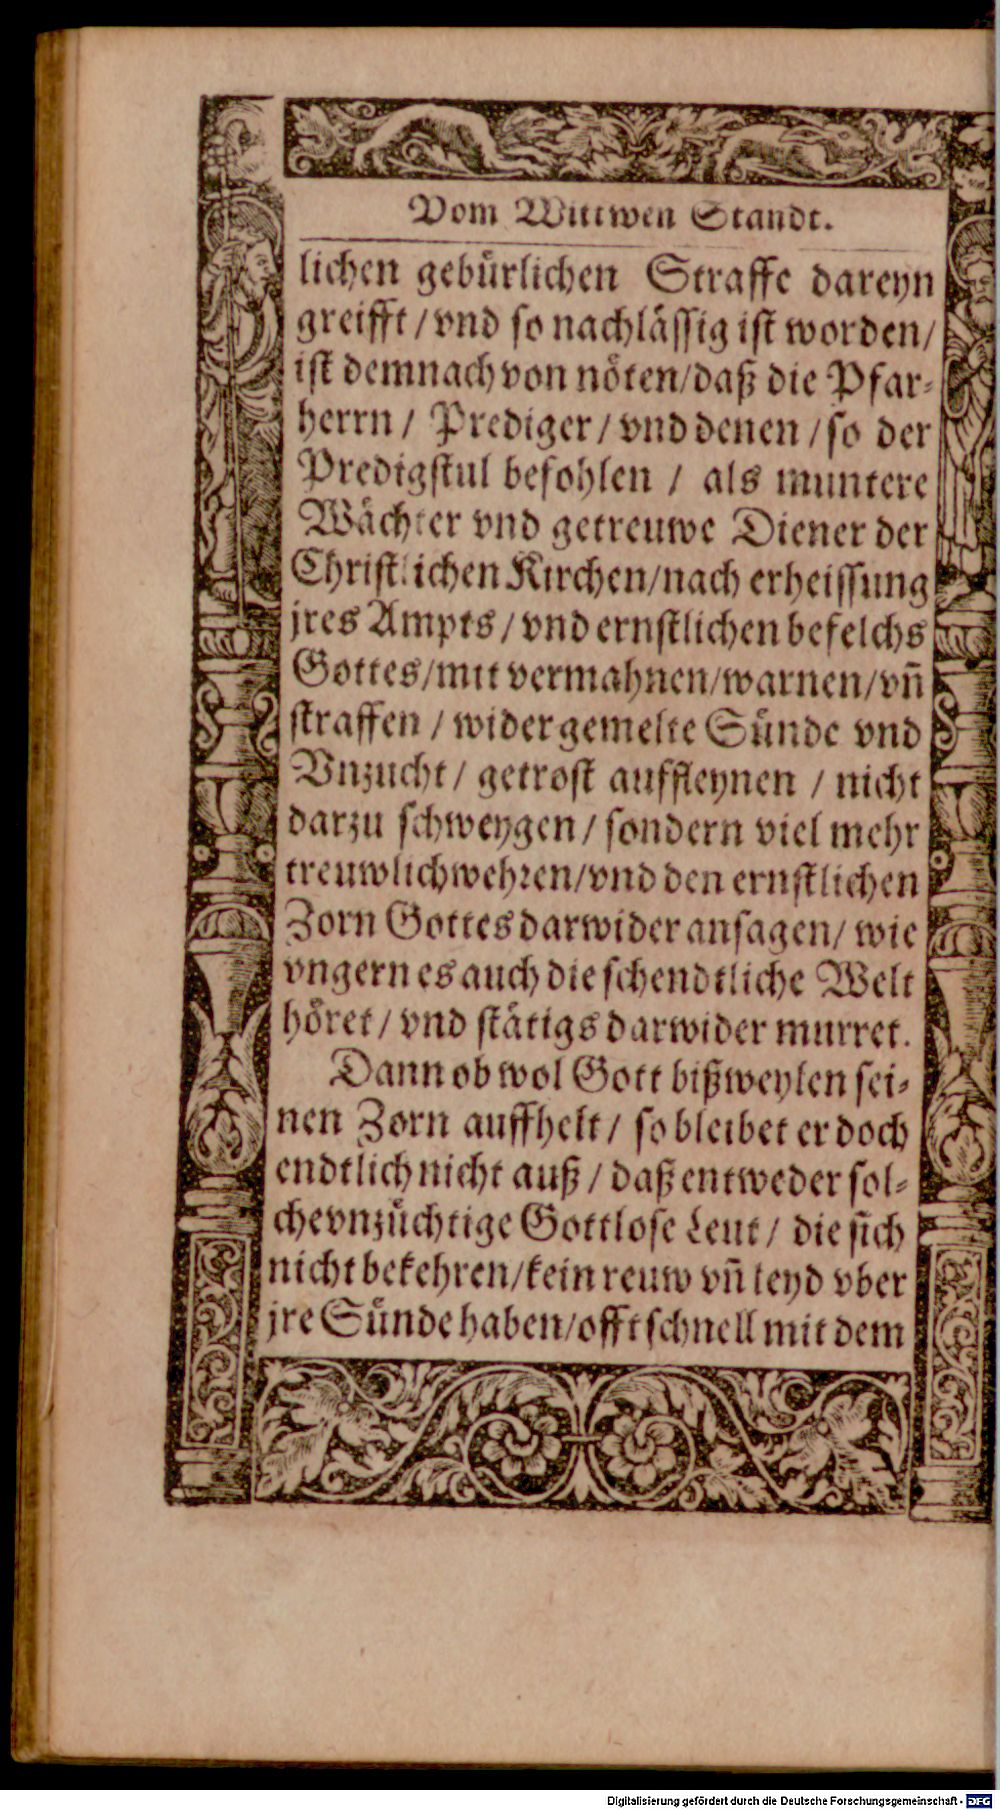 Vom Wittwen Standt.
lichen gebürlichen Straffe dareyn
greifft / vnd so nachlässig ist worden /
ist demnach von nöten / daß die Pfar-
herrn / Prediger / vnd denen / so der
Predigstul befohlen / als muntere
Wächter vnd getreuwe Diener der
Christlichen Kirchen / nach erheissung
jres Ampts / vnd ernstlichen befelchs
Gottes / mit vermahnen / warnen / vñ
straffen / wider gemelte Sünde vnd
Vnzucht / getrost auffleynen / nicht
darzu schweygen / sondern viel mehr
treuwlich wehren / vnd den ernstlichen
Zorn Gottes darwider ansagen / wie
vngern es auch die schendtliche Welt
höret / vnd stätigs darwider murret.
Dann ob wol Gott bißweylen sei-
nen Zorn auffhelt / so bleibet er doch
endtlich nicht auß / daß entweder sol-
che vnzüchtige Gottlose Leut / die sich
nicht bekehren / kein reuw vñ leyd vber
jre Sünde haben / offt schnell mit dem
Digitalisierung gefördert durch die Deutsche Forschungsgemeinschaft - DFG